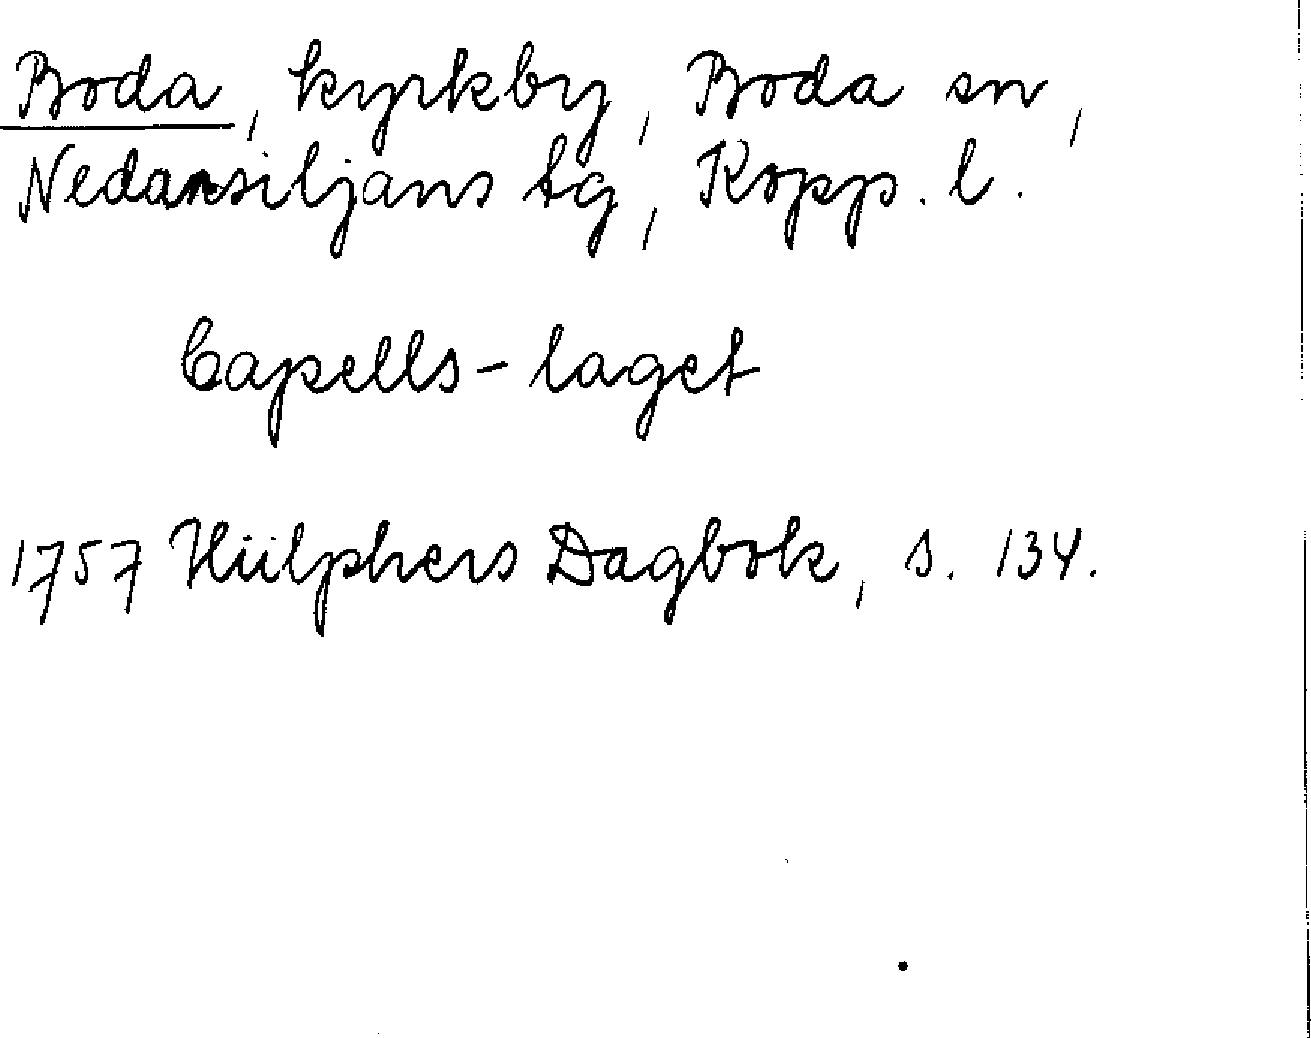 Boda, kyrkby, Boda sn,
Nedansiljans tg, Kopp. l.
Capells-laget
1757 Hülphers Dagbok, s. 134.